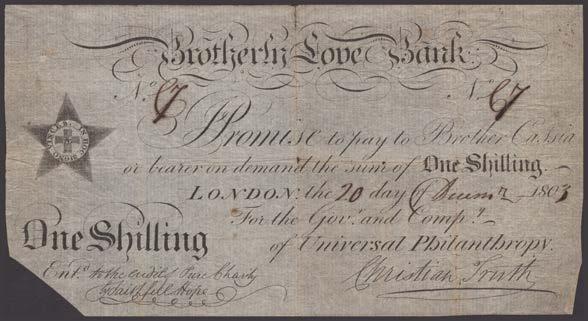 Brotherly Love Bank
No. 67 No. 67
I Promise to pay to Brother Cassia
or bearer on demand the sum of One Shilling.
LONDON: the 20 day of Decemr. 1803
For the Govr. and Compy.
One Shilling of Universal Philanthropy.
Entd. to the credit of Pure Charity
by Faithfull Hope
Christian Truth